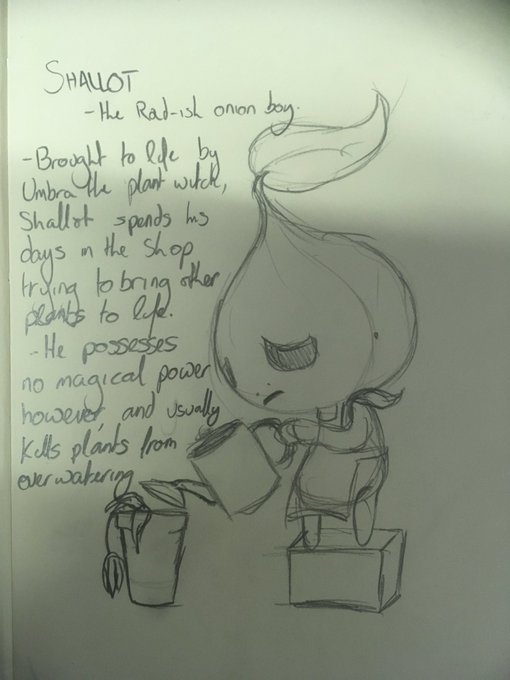 SHALLOT
- the Rad-ish onion boy.
- Brought to life by
Umbra the plant witch,
Shallot spends his
days in the shop
trying to bring other
plants to life.
- He possesses
no magical power
however, and usually
kills plants from
overwatering